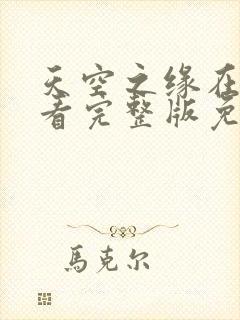 天空之缘在
看完整版免
馬克尔